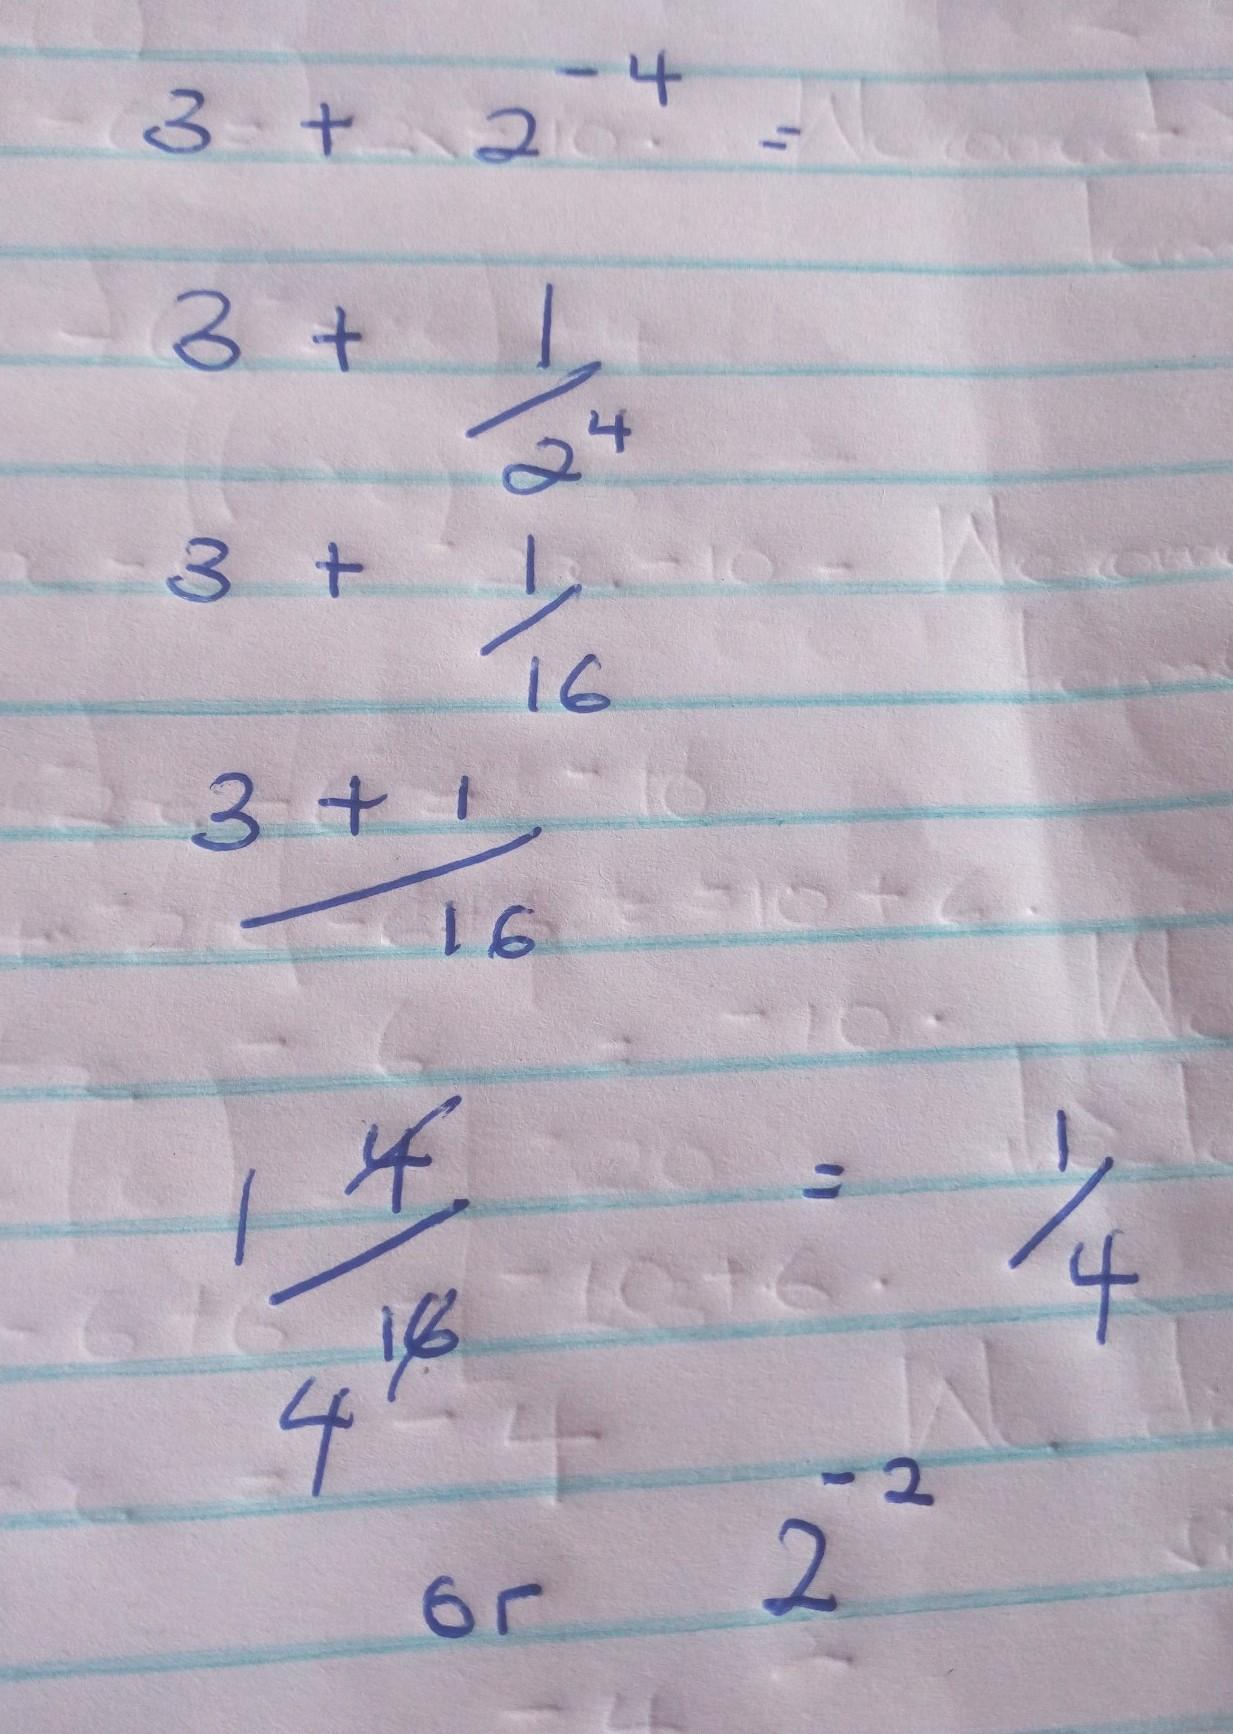 3 + 2⁻⁴ =
3 + 1/2⁴
3 + 1/16
3 + 1/16
1 4/16 = 1/4
4
or 2⁻²